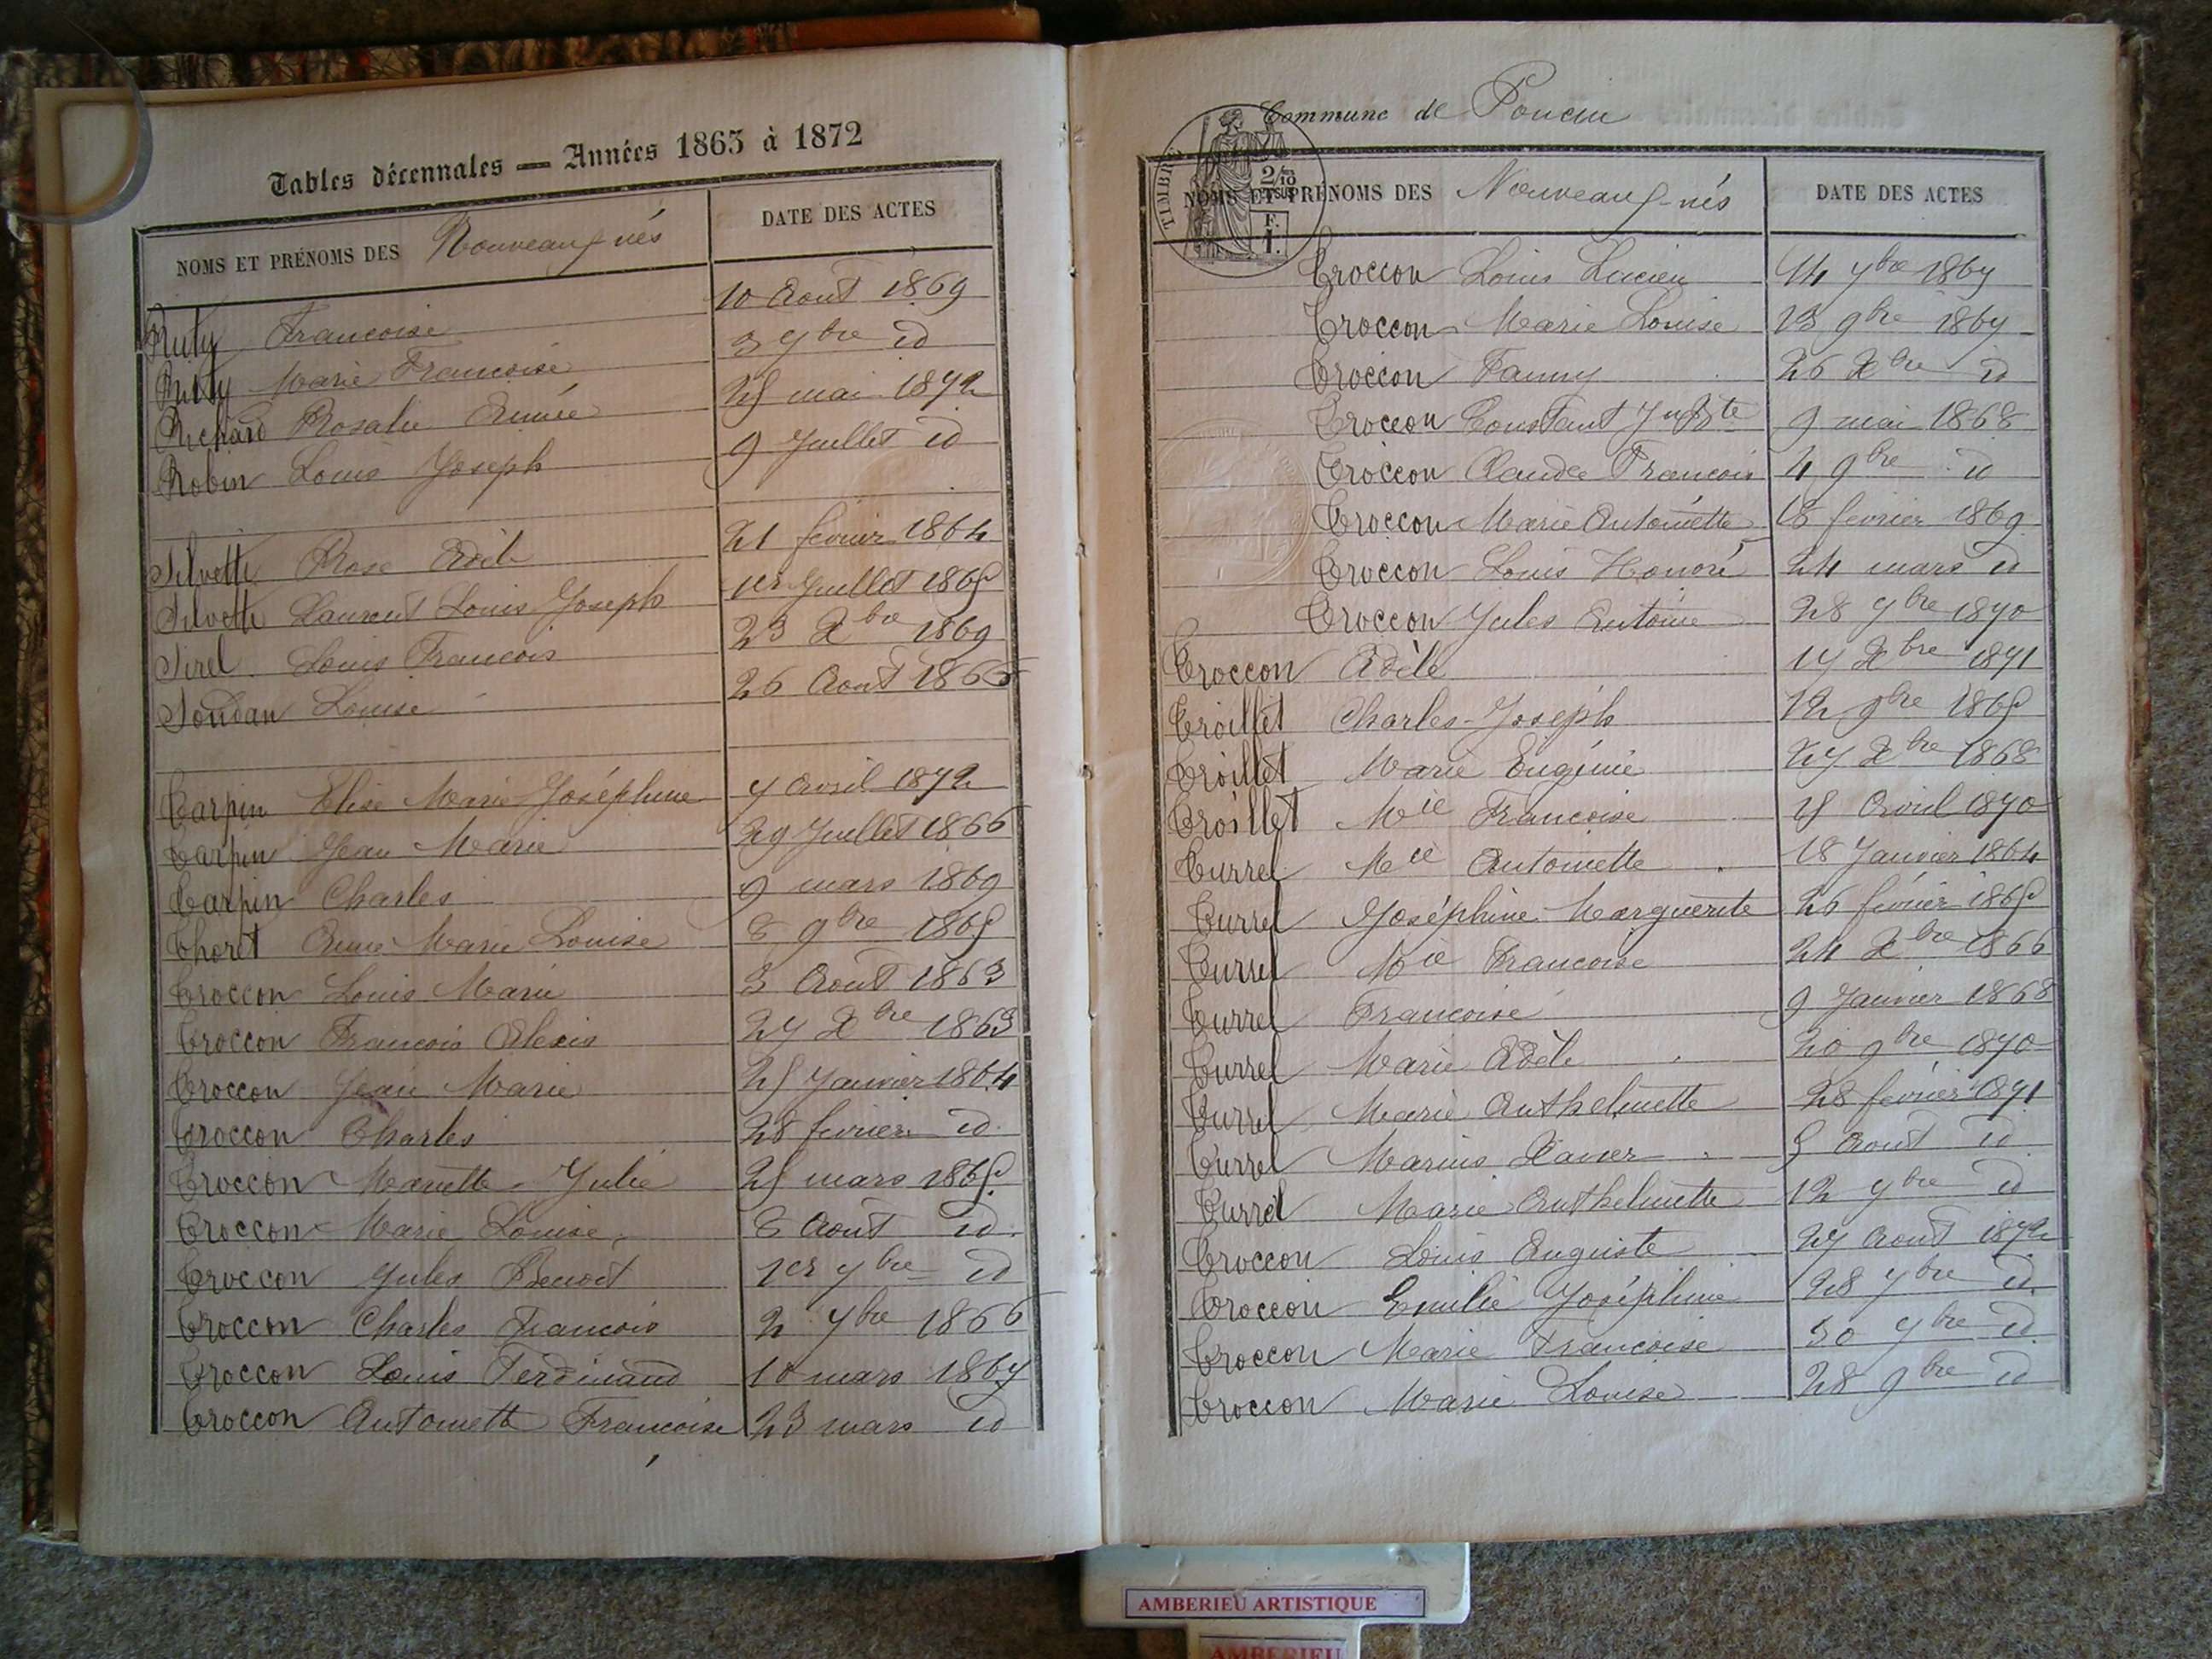 Tables décennales — Années 1863 à 1872
NOMS ET PRÉNOMS DES Nouveaux nés DATE DES ACTES
Ruty Francoise 10 Aout 1869
Ruty Marie Francoise 3 7bre id
Richard Rosalie Aimée 25 mai 1872
Robin Louis Joseph 9 Juillet id
Silvette Rose Adèle 21 fevrier 1864
Silvette Laurent Louis Joseph 1er Juillet 1865
Sirel Louis Francois 23 Xbre 1869
Soudan Louise 26 Aout 1866
Tarpin Elise Marie Joséphine 7 Avril 1872
Tarpin Jean Marie 29 Juillet 1866
Tarpin Charles 9 mars 1869
Thoret Anne Marie Louise 8 9bre 1865
Troccon Louis Marie 3 Aout 1863
Troccon Francois Alexis 27 Xbre 1863
Troccon Jean Marie 25 Janvier 1864
Troccon Charles 28 fevrier id
Troccon Mariette Julie 25 mars 1865
Troccon Marie Louise 8 Aout id
Troccon Jules Benoit 1er 7bre id
Troccon Charles Francois 2 7bre 1866
Troccon Louis Ferdinand 10 mars 1867
Troccon Antoinette Francoise 23 mars id
Commune de Poncin
TIMBRE
2/10
EN SUS
F.
1.
NOMS ET PRÉNOMS DES Nouveaux-nés DATE DES ACTES
Troccon Louis Lucien 14 7bre 1867
Troccon Marie Louise 13 9bre 1867
Troccon Fanny 26 Xbre id
Troccon Constant 9 mai 1868
Troccon Claude Francois 4 9bre id
Troccon Marie Antoinette 18 fevrier 1869
Troccon Louis Honoré 24 mars id
Troccon Jules Antoine 28 7bre 1870
Troccon Adèle 17 Xbre 1871
Troillet Charles-Joseph 12 9bre 1865
Troillet Marie Eugénie 27 Xbre 1868
Troillet Mie Francoise 15 Avril 1870
Turrel Mie Antoinette 18 Janvier 1864
Turrel Joséphine Marguerite 26 février 1865
Turrel Mie Francoise 24 Xbre 1866
Turrel Francoise 9 Janvier 1868
Turrel Marie Adèle 20 9bre 1870
Turrel Marie Anthelmette 28 fevrier 1871
Turrel Marius Xavier 5 Aout id
Turrel Marie Anthelmette 12 7bre id
Troccon Louis Auguste 27 Aout 1872
Troccon Emilie Joséphine 28 7bre id
Troccon Marie Francoise 30 7bre id
Troccon Marie Louise 28 9bre id
AMBERIEU ARTISTIQUE
AMBERIEU